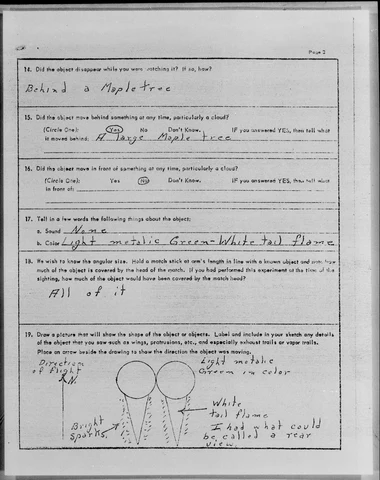 Page 2
14. Did the object disappear while you were watching it? If so, how?
Behind a Maple tree
15. Did the object move behind something at any time, particularly a cloud?
(Circle One): Yes No Don't Know. IF you answered YES, then tell what
it moved behind: A large Maple tree
16. Did the object move in front of something at any time, particularly a cloud?
(Circle One): Yes No Don't Know. IF you answered YES, then tell what
in front of:
17. Tell in a few words the following things about the object:
a. Sound None
b. Color Light metalic Green-White tail flame
18. We wish to know the angular size. Hold a match stick at arm's length in line with a known object and note how
much of the object is covered by the head of the match. If you had performed this experiment at the time of the
sighting, how much of the object would have been covered by the match head?
All of it
19. Draw a picture that will show the shape of the object or objects. Label and include in your sketch any details
of the object that you saw such as wings, protrusions, etc., and especially exhaust trails or vapor trails.
Place an arrow beside the drawing to show the direction the object was moving.
Direction
of flight
N.
Light metalic
Green in color
White
tail flame
Bright
Sparks.
I had what could
be called a rear
view.